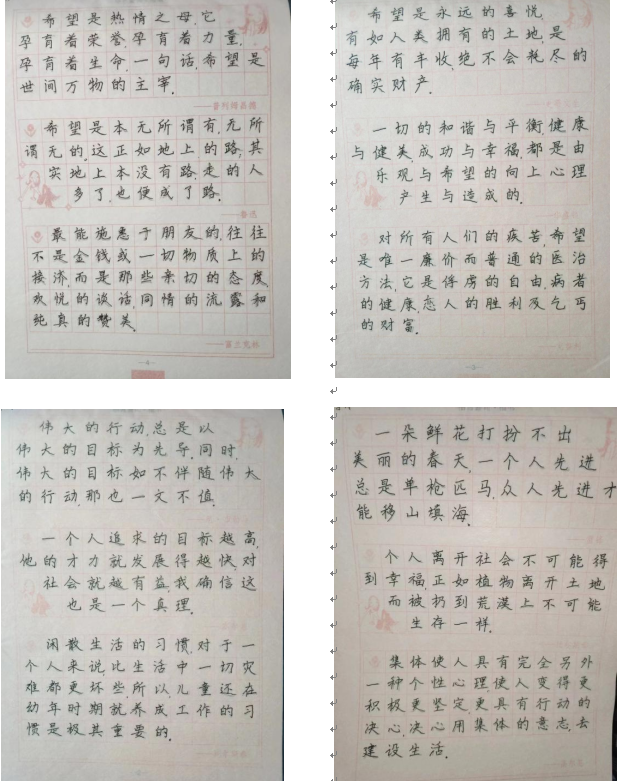 希望是热情之母,它
孕育着荣誉,孕育着力量,
孕育着生命.一句话,希望是
世间万物的主宰.
希望是本无所谓有,无所
谓无的.这正如地上的路;其
实地上本没有路走的人
多了,也便成了路.
最能施惠于朋友的,往往
不是金钱或一切物质上的
接济,而是那些亲切的态度,
欢悦的谈话,同情的流露和
纯真的赞美.
希望是永远的喜悦,
有如人类拥有的土地,是
每年有丰收,绝不会耗尽的
确实财产.
一切的和谐与平衡,健康
与健美,成功与幸福,都是由
乐观与希望的向上心理
产生与造成的.
对所有人们的疾苦,希望
是唯一廉价而普通的医治
方法,它是俘虏的自由,病者
的健康,恋人的胜利及乞丐
的财富.
伟大的行动,总是以
伟大的目标为先导,同时,
伟大的目标如不伴随伟大
的行动,那也一文不值.
一个人追求的目标越高,
他的才力就发展得越快,对
社会就越有益,我确信这
也是一个真理.
闲散生活的习惯,对于一
个人来说,比生活中一切灾
难都更坏些所以儿童还在
幼年时期就养成工作的习
惯是极其重要的.
一朵鲜花打扮不出
美丽的春天,一个人先进
总是单枪匹马,众人先进才
能移山填海.
个人离开社会不可能得
到幸福,正如植物离开土地
而被扔到荒漠上不可能
生存一样.
集体使人具有完全另外
一种个性心理使人变得更
积极更坚定,更具有行动的
决心,决心用集体的意志,去
建设生活.